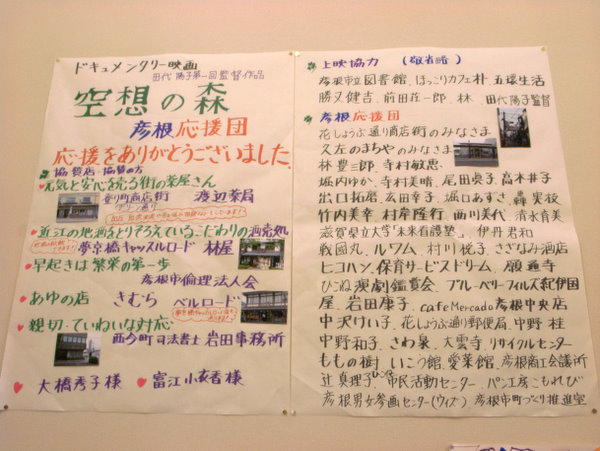 ドキュメンタリー映画
田代 陽子第一回監督作品
空想の森
彦根応援団
応援をありがとうございました
協賛店・協賛の方
♥元気と安心を売る街の薬屋さん
登り町商店街
渡辺薬局
♥近江の地酒をとりそろえているこだわりの酒売処
夢京橋キャッスルロード 林屋
♥早起きは繁栄の第一歩
彦根市倫理法人会
♥あゆの店 きむら ベルロード
♥親切・ていねいな対応
西今町司法書士 岩田事務所
♥大橋秀子様 ♥富江小衣香様
上映協力 (敬省略)
彦根市立図書館、ほっこりカフェ朴 五環生活
勝又健吉、前田荘一郎、林 田代陽子監督
彦根応援団
花しょうぶ通り商店街のみなさま
久左のまちやのみなさま
林 豊三郎、寺村敏恵
堀内ゆか、寺村美晴、尾田典子、高木井子
出口拓磨、玄田幸子、堀口あすさ、轟 実枝
竹内美幸、村岸隆行、西川美代、清水育美
滋賀県立大学「未来看護塾」、伊丹君和
戦國丸、ルワム、村川悦子、さざなみ酒店
ヒコハン、保育サービスドリーム、願通寺
ひこね演劇鑑賞会、ブルーベリーフィルズ紀伊国
屋、岩田康子、cafe Mercado彦根中央店
中沢けい子、花しょうぶ通り郵便局、中野 桂
中野和子、さわ泉、大雲寺、リサイクルセンター
ももの樹、いこう館、愛菜館、彦根商工会議所
辻 真理子、ひこね市民活動センター、パン工房こもれび
彦根男女参画センター(ウィズ) 彦根市町づくり推進室